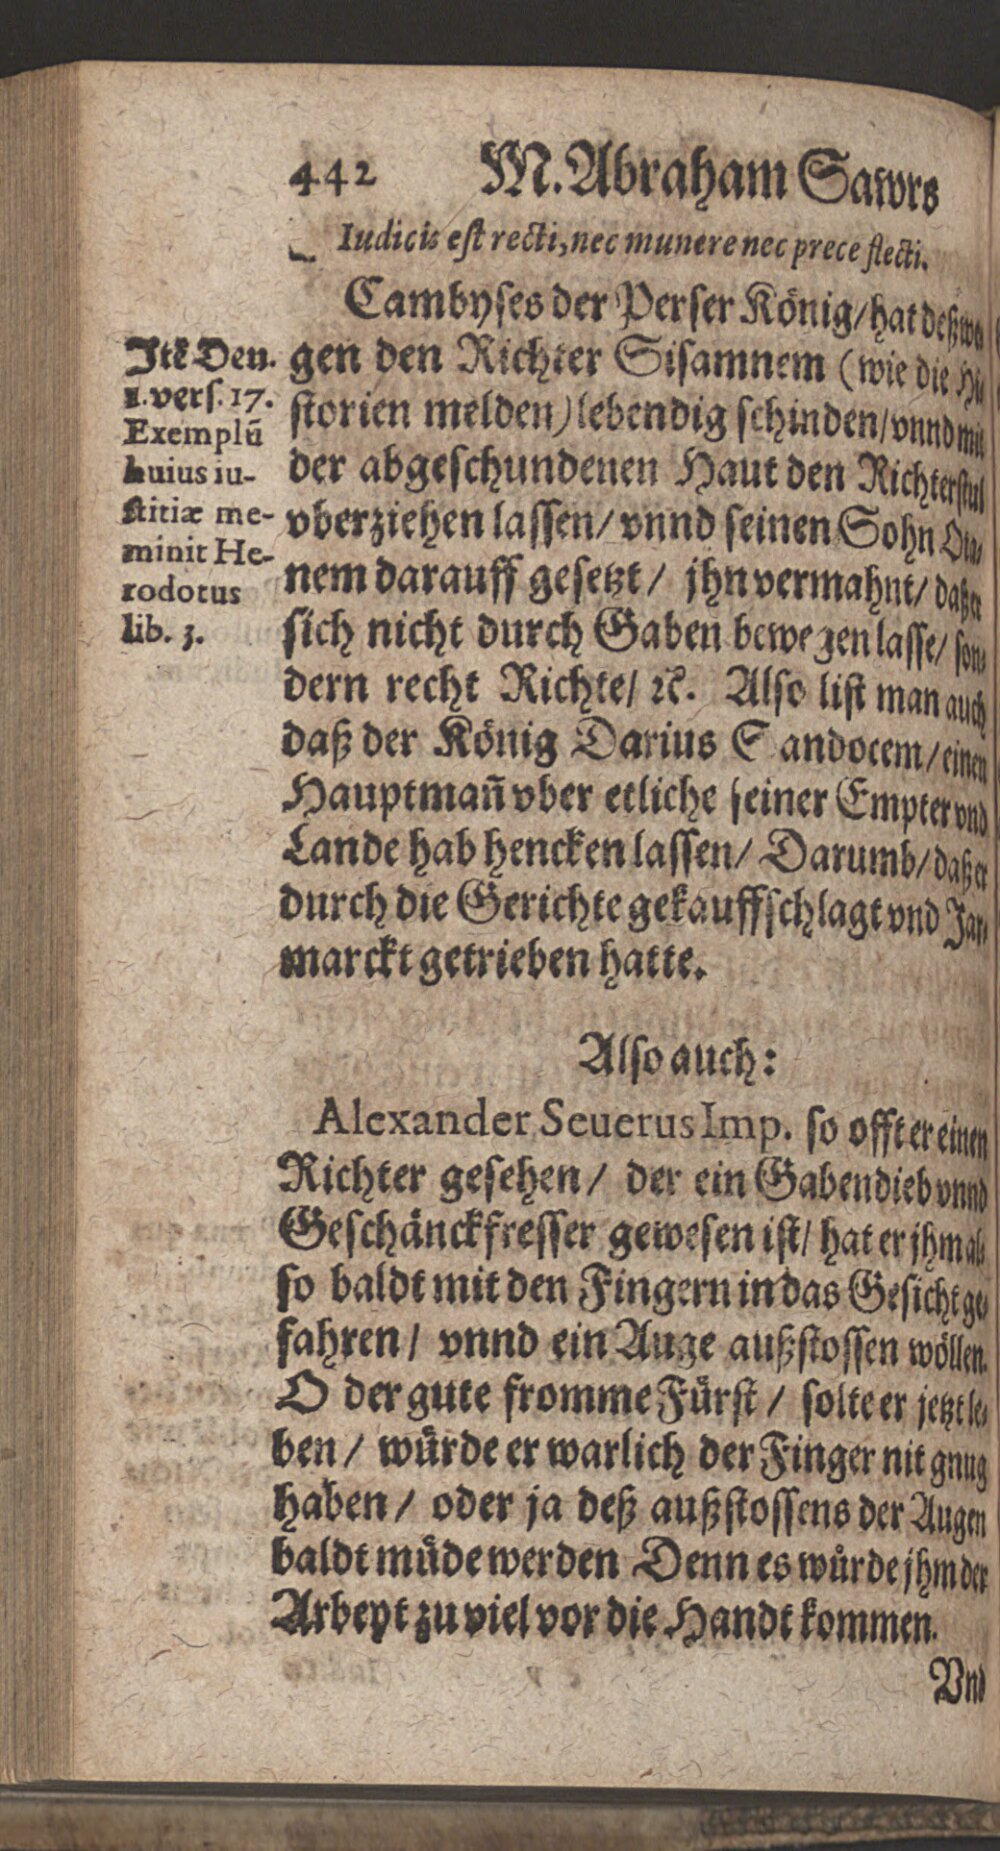 442 M. Abraham Sawrs
Iudicis est recti, nec munere nec prece flecti.
Cambyses der Perser König/ hat deßwe
gen den Richter Sisamnem (wie die Hi
storien melden) lebendig schinden/ vnnd mit
der abgeschundenen Haut den Richterstul
vberziehen lassen/ vnnd seinen Sohn Ota-
nem darauff gesetzt/ jhn vermahnt/ daß er
sich nicht durch Gaben bewegen lasse/ son-
dern recht Richte/ ꝛc. Also list man auch
daß der König Darius Sandocem/ einen
Hauptman̄ vber etliche seiner Empter vnd
Lande hab hencken lassen/ Darumb/ daß er
durch die Gerichte gekauffschlagt vnd Jar-
marckt getrieben hatte.
Itē Deu.
1. vers. 17.
Exemplū
huius iu-
stitiæ me-
minit He-
rodotus
lib. 3.
Also auch:
Alexander Seuerus Imp. so offt er einen
Richter gesehen/ der ein Gabendieb vnnd
Geschänckfresser gewesen ist/ hat er jhm al-
so baldt mit den Fingern in das Gesicht ge-
fahren/ vnnd ein Auge außstossen wöllen.
O der gute fromme Fürst/ solte er jetzt le-
ben/ würde er warlich der Finger nit gnug
haben/ oder ja deß außstossens der Augen
baldt müde werden Denn es würde jhm der
Arbeyt zu viel vor die Handt kommen.
Vnd